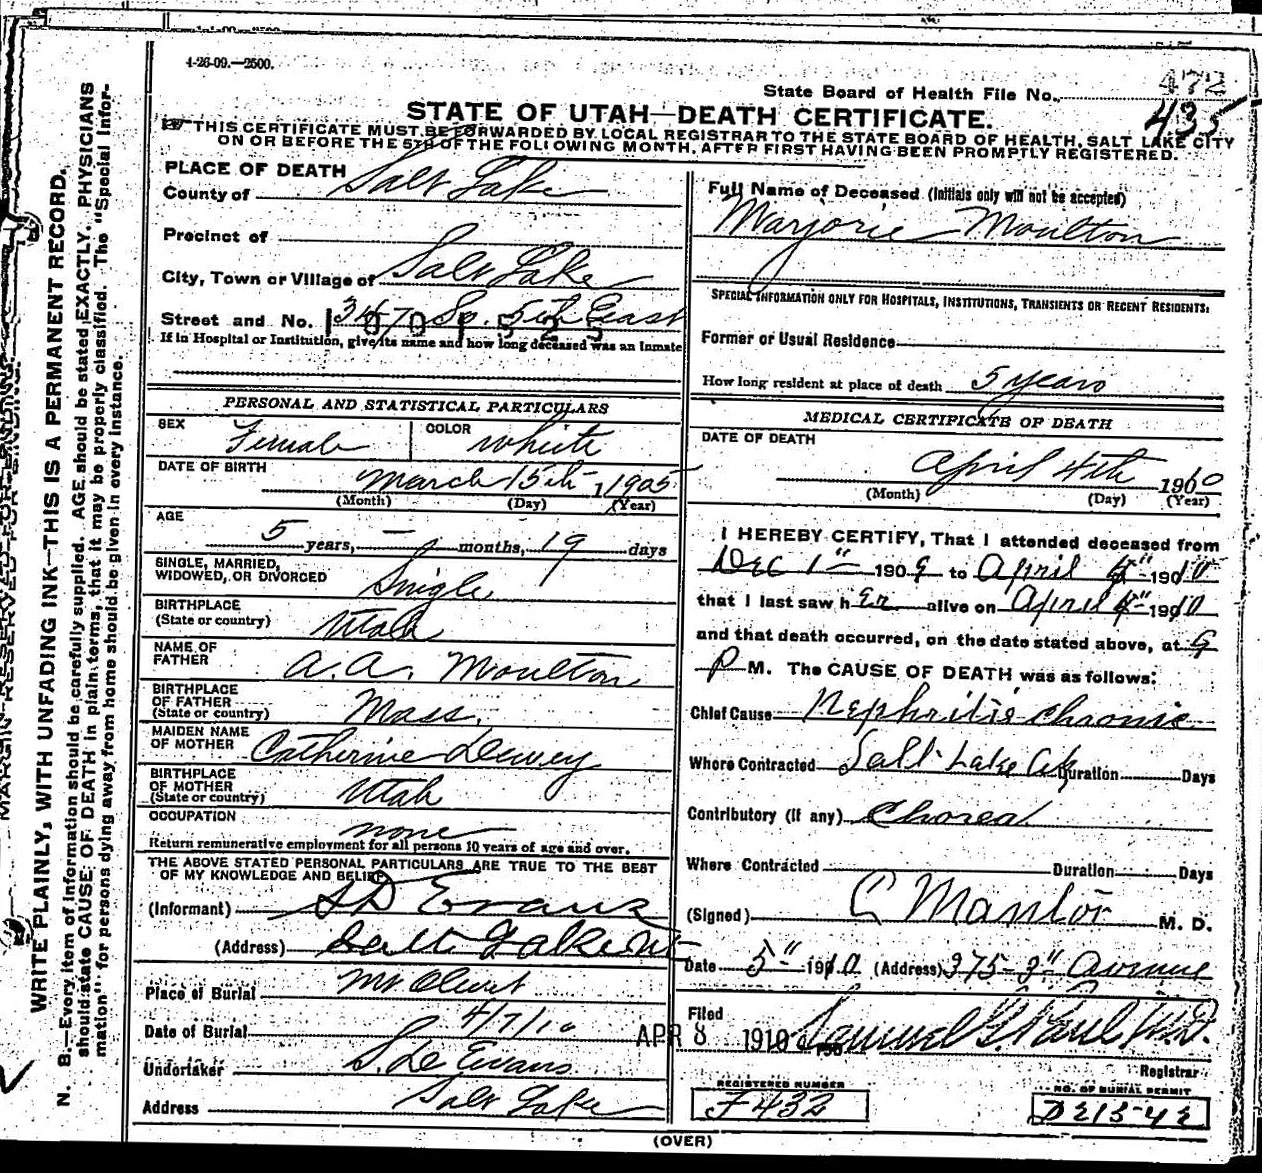 4-26-09.—2500.
State Board of Health File No. 472
435
STATE OF UTAH—DEATH CERTIFICATE.
THIS CERTIFICATE MUST BE FORWARDED BY LOCAL REGISTRAR TO THE STATE BOARD OF HEALTH, SALT LAKE CITY
ON OR BEFORE THE 5TH OF THE FOLLOWING MONTH, AFTER FIRST HAVING BEEN PROMPTLY REGISTERED.
MARGIN RESERVED FOR BINDING.
WRITE PLAINLY, WITH UNFADING INK—THIS IS A PERMANENT RECORD.
N. B.—Every item of information should be carefully supplied. AGE should be stated EXACTLY. PHYSICIANS
should state CAUSE OF DEATH in plain terms, that it may be properly classified. The "Special Infor-
mation" for persons dying away from home should be given in every instance.
PLACE OF DEATH
County of Salt Lake
Precinct of
City, Town or Village of Salt Lake
Street and No. 347 So. 5th East
If in Hospital or Institution, give its name and how long deceased was an Inmate
PERSONAL AND STATISTICAL PARTICULARS
SEX Female COLOR White
DATE OF BIRTH March 15th, 1905
(Month) (Day) (Year)
AGE 5 years, — months, 19 days
SINGLE, MARRIED,
WIDOWED, OR DIVORCED Single
BIRTHPLACE
(State or country) Utah
NAME OF
FATHER A. A. Moulton
BIRTHPLACE
OF FATHER
(State or country) Mass.
MAIDEN NAME
OF MOTHER Catherine Dewey
BIRTHPLACE
OF MOTHER
(State or country) Utah
OCCUPATION none
Return remunerative employment for all persons 10 years of age and over.
THE ABOVE STATED PERSONAL PARTICULARS ARE TRUE TO THE BEST
OF MY KNOWLEDGE AND BELIEF
(Informant) S D Evans
(Address) Salt Lake Ut
Place of Burial Mt Olivet
Date of Burial 4/7/10
Undertaker S. D. Evans
Address Salt Lake
Full Name of Deceased (Initials only will not be accepted)
Marjorie Moulton
SPECIAL INFORMATION ONLY FOR HOSPITALS, INSTITUTIONS, TRANSIENTS OR RECENT RESIDENTS:
Former or Usual Residence
How long resident at place of death 5 years
MEDICAL CERTIFICATE OF DEATH
DATE OF DEATH April 4th 1910
(Month) (Day) (Year)
I HEREBY CERTIFY, That I attended deceased from
Dec 1" 1909 to April 4" 1910
that I last saw her alive on April 4" 1910
and that death occurred, on the date stated above, at 9
P M. The CAUSE OF DEATH was as follows:
Chief Cause Nephritis chronic
Where Contracted Salt Lake City Duration Days
Contributory (if any) Chorea
Where Contracted Duration Days
(Signed) C Mantor M. D.
Date 5" 1910 (Address) 375-3" Avenue
Filed APR 8 1910 Samuel G. Paul, M.D.
Registrar
REGISTERED NUMBER
F432
NO. OF BURIAL PERMIT
(OVER)